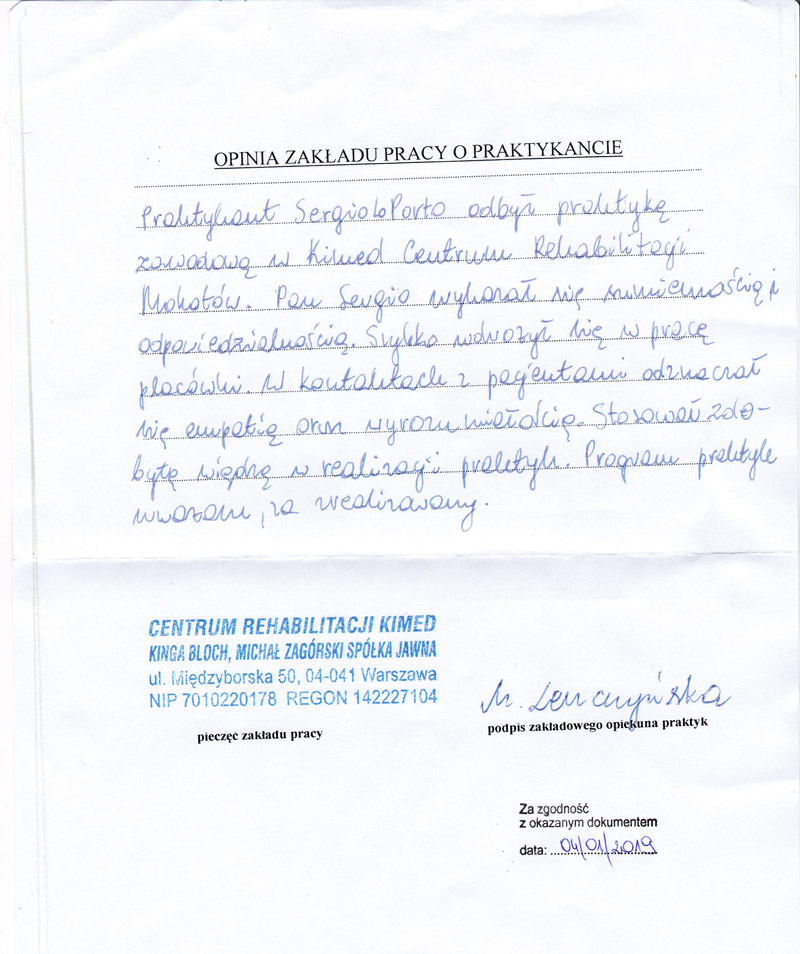 OPINIA ZAKŁADU PRACY O PRAKTYKANCIE
Praktykant Sergio lo Porto odbył praktykę
zawodową w Kimed Centrum Rehabilitacji
Mokotów. Pan Sergio wykazał się sumiennością i
odpowiedzialnością. Szybko wdrożył się w pracę
placówki. W kontaktach z pacjentami odznaczał
się empatią oraz wyrozumiałością. Stosował zdo-
bytą wiedzę w realizacji praktyk. Program praktyk
uważam za zrealizowany.
CENTRUM REHABILITACJI KIMED
KINGA BLOCH, MICHAŁ ZAGÓRSKI SPÓŁKA JAWNA
ul. Międzyborska 50, 04-041 Warszawa
NIP 7010220178 REGON 142227104
pieczęć zakładu pracy
M. Lenczyńska
podpis zakładowego opiekuna praktyk
Za zgodność
z okazanym dokumentem
data: 04/01/2019